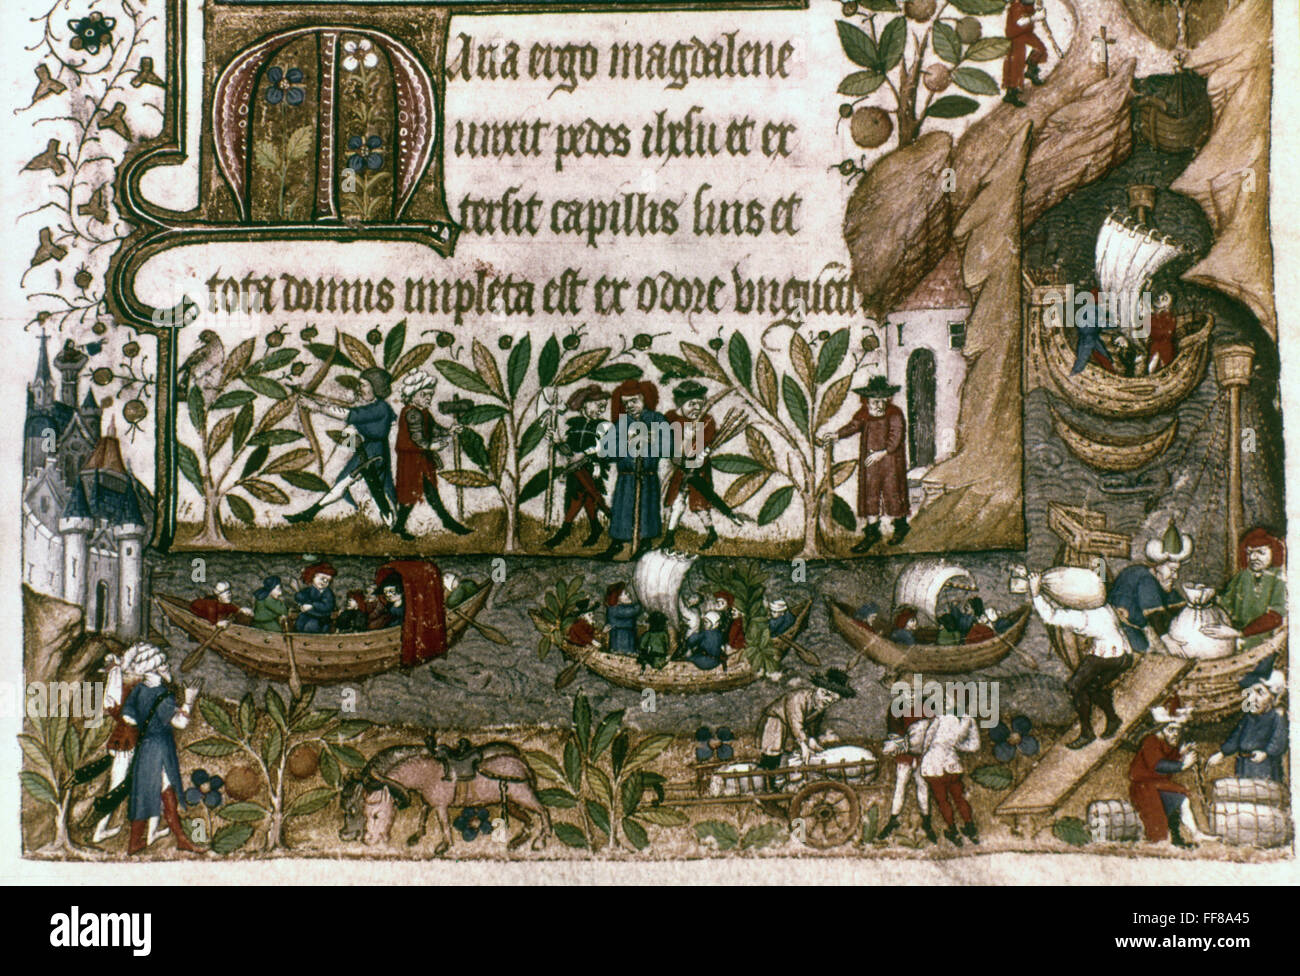 Maria ergo magdalene
unxit pedes ihesu et ex
tersit capillis suis et
tota domus impleta est ex odore unguenti
alamy
Image ID: FF8A45
www.alamy.com